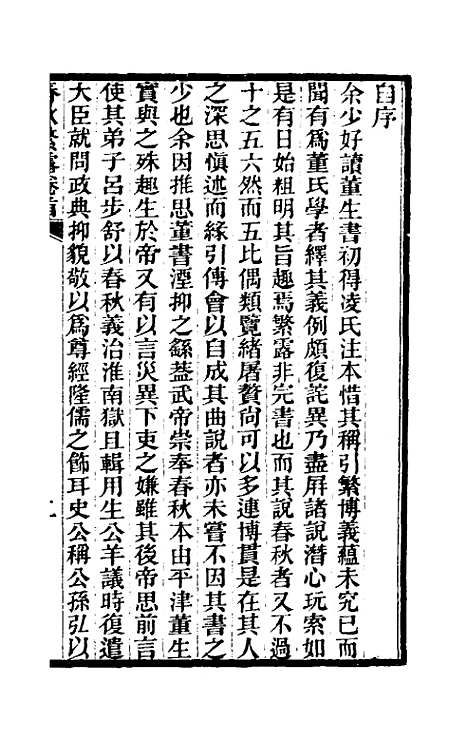 自序
余少好讀董生書初得凌氏注本惜其稱引繁博義蘊未究已而
聞有爲董氏學者繹其義例頗復詫異乃盡屏諸說潛心玩索如
是有日始粗明其旨趣焉繁露非完書也而其說春秋者又不過
十之五六然而五比偶類覽緒屠贅尙可以多連博貫是在其人
之深思愼述而緣引傅會以自成其曲說者亦未嘗不因其書之
少也余因推思董書湮抑之繇葢武帝崇奉春秋本由平津董生
實與之殊趣生於帝又有以言災異下吏之嫌雖其後帝思前言
使其弟子呂步舒以春秋義治淮南獄且輯用生公羊議時復遣
大臣就問政典抑貌敬以爲尊經隆儒之飾耳史公稱公孫弘以
春秋繁露卷首